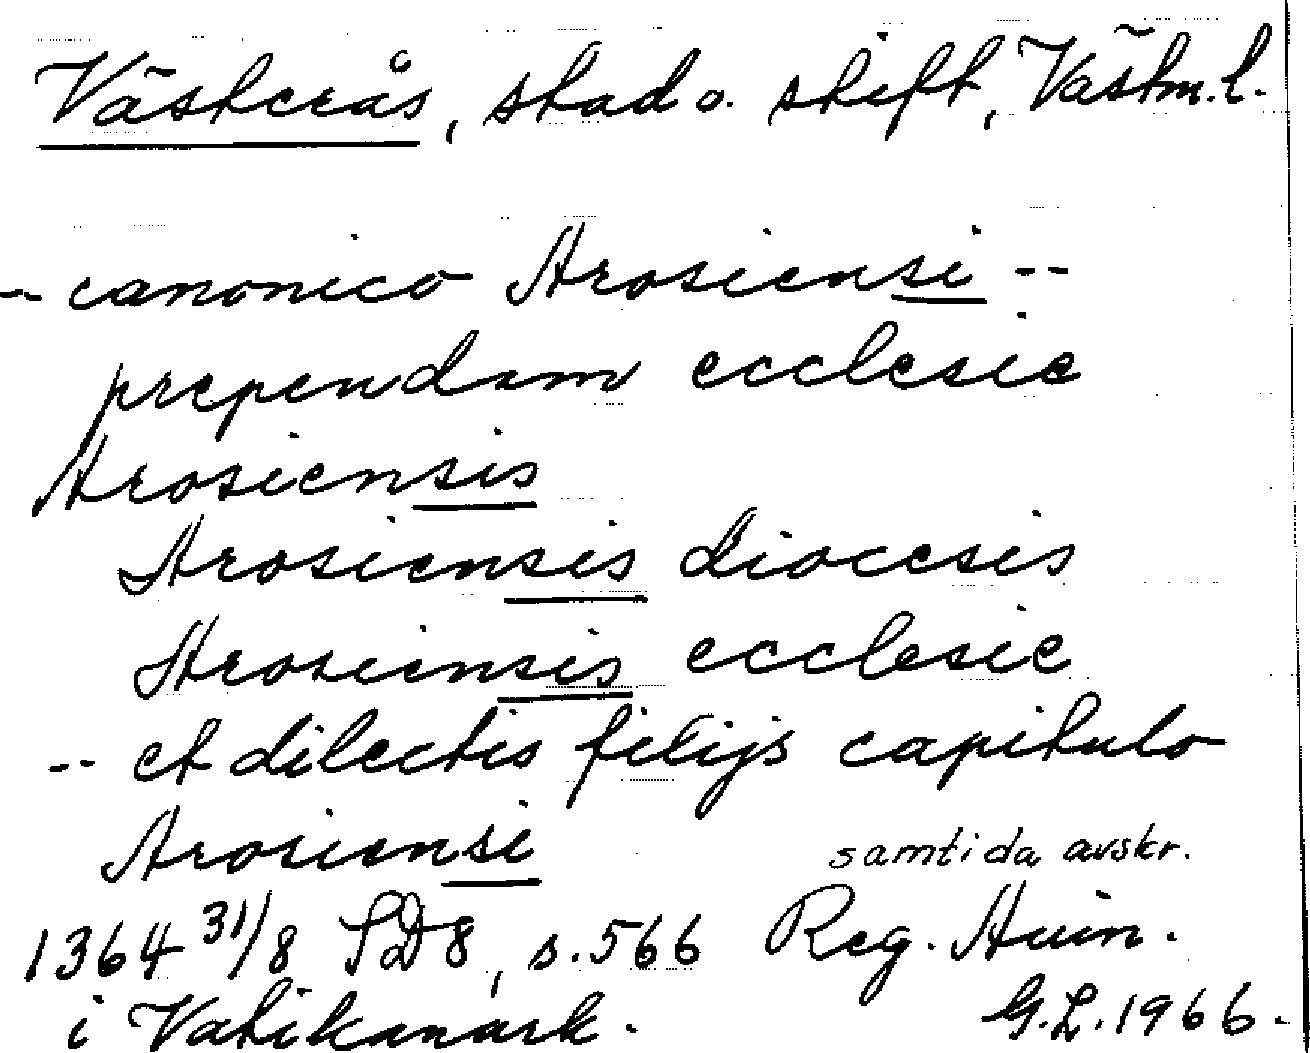 Västerås, stad o. stift, Västm. l.
-- canonico Arosiensi --
prependam ecclesie
Arosiensis
Arosiensis diocesis
Arosiensis ecclesie
-- et dilectis filijs capitulo
Arosiensi
samtida avskr.
1364 31/8 SD 8, s. 566 Reg. Avin.
i Vatikanark. G.L. 1966.